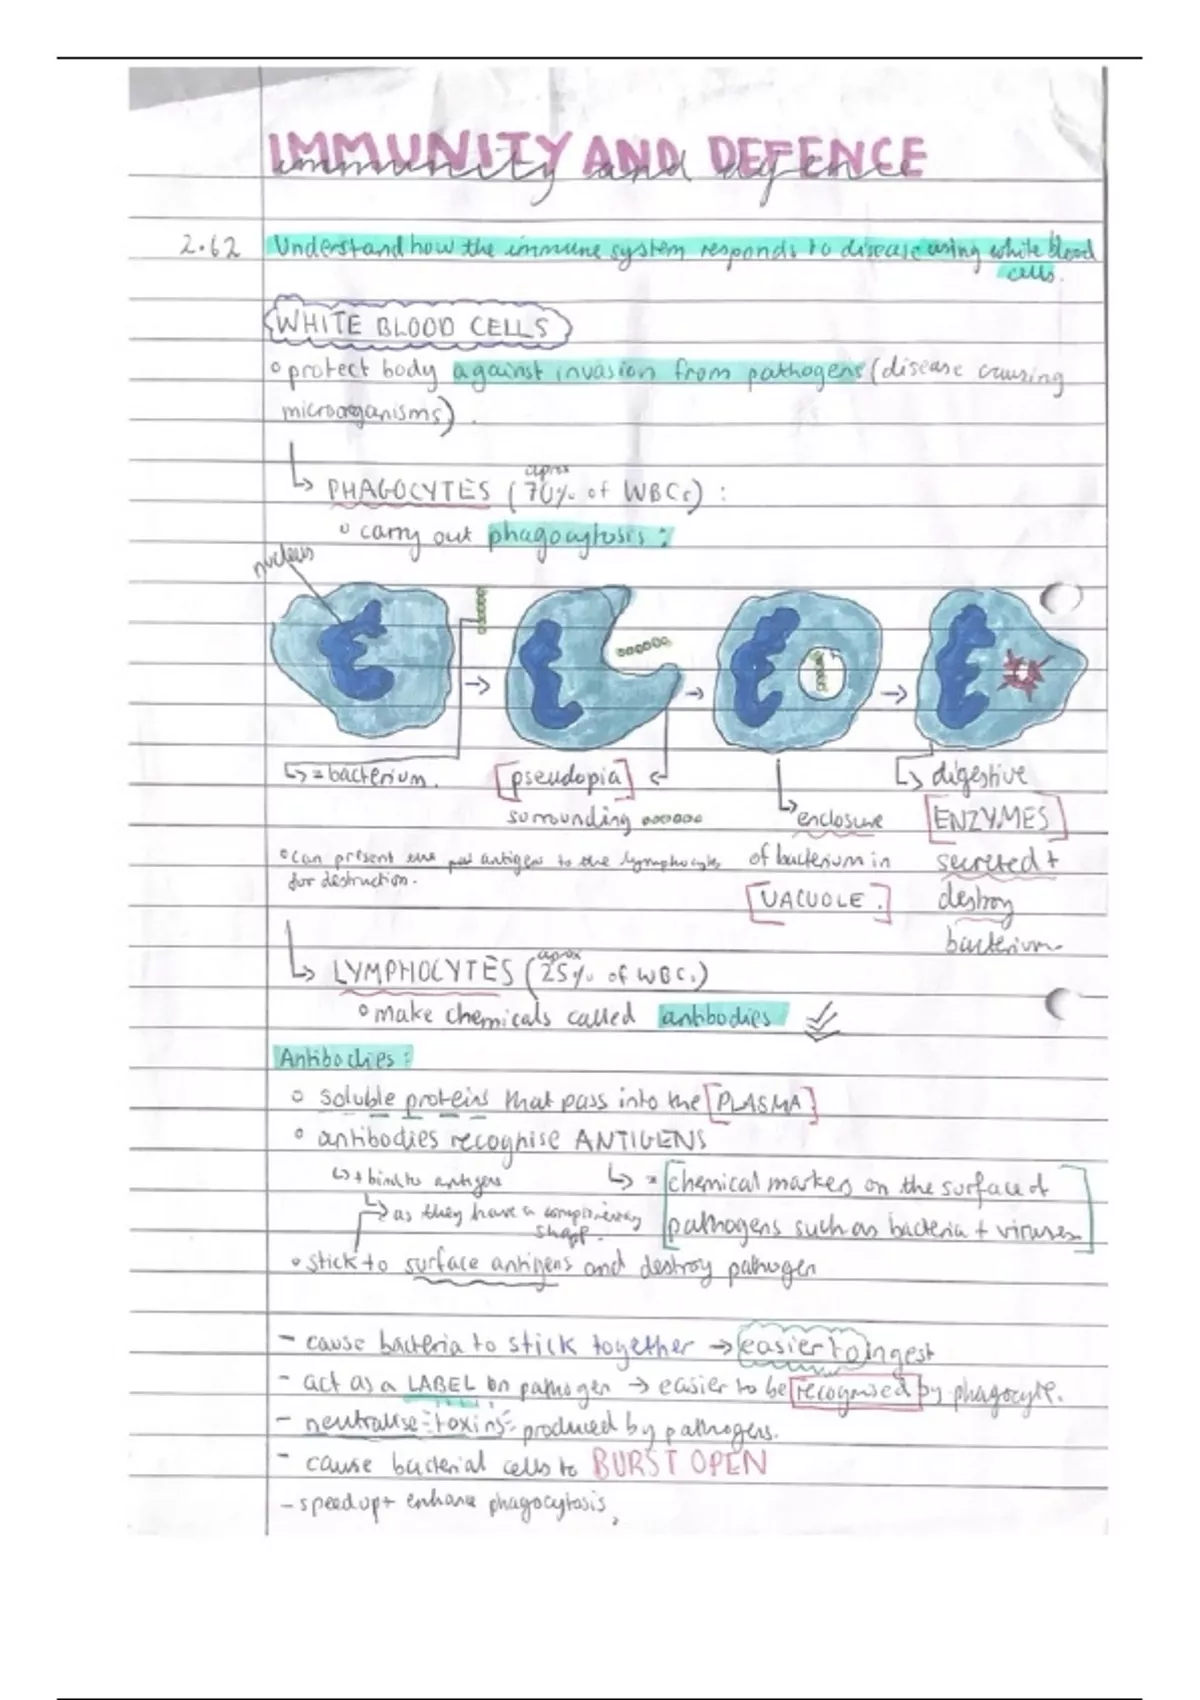 IMMUNITY AND DEFENCE
immunity and defence
2.62 Understand how the immune system responds to disease using white blood
cells.
WHITE BLOOD CELLS
protect body against invasion from pathogens (disease causing
microorganisms).
aprox
↳ PHAGOCYTES (70% of WBCs) :
carry out phagocytosis :
nucleus
↳ = bacterium.
[pseudopia]
surrounding
↳ enclosure
of bacterium in
[VACUOLE.]
↳ digestive
[ENZYMES]
secreted +
destroy
bacterium.
can present the antigen to the lymphocytes
for destruction.
aprox
↳ LYMPHOCYTES (25% of WBCs)
make chemicals called antibodies
Antibodies :
soluble proteins that pass into the [PLASMA]
antibodies recognise ANTIGENS
↳ + bind to antigens
↳ as they have a complementary
shape.
↳ = [chemical markers on the surface of
pathogens such as bacteria + viruses]
stick to surface antigens and destroy pathogen
- cause bacteria to stick together → easier to ingest
- act as a LABEL on pathogen → easier to be recognised by phagocyte.
- neutralise toxins produced by pathogens.
- cause bacterial cells to BURST OPEN
- speed up + enhance phagocytosis.